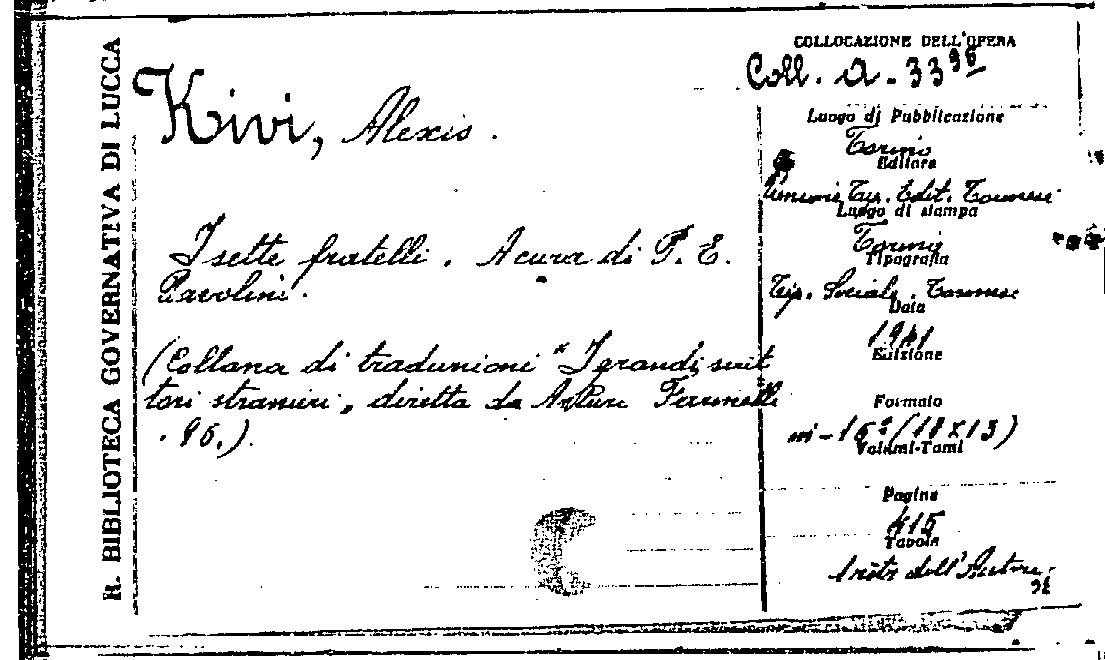 R. BIBLIOTECA GOVERNATIVA DI LUCCA
Kivi, Alexis.
I sette fratelli. A cura di P. E.
Pavolini.
(Collana di traduzioni "I grandi scrit
tori stranieri", diretta da Arturo Farinelli
. 96.)
COLLOCAZIONE DELL'OPERA
Coll. A - 33 96
Luogo di Pubblicazione
Torino
Editore
Unione Tip. Edit. Torinese
Luogo di stampa
Torino
Tipografia
Tip. Sociale Torinese
Data
1941
Edizione
Formato
in-16° (18x13)
Volumi-Tomi
Pagine
415
Tavole
1 ritr dell'Autore.